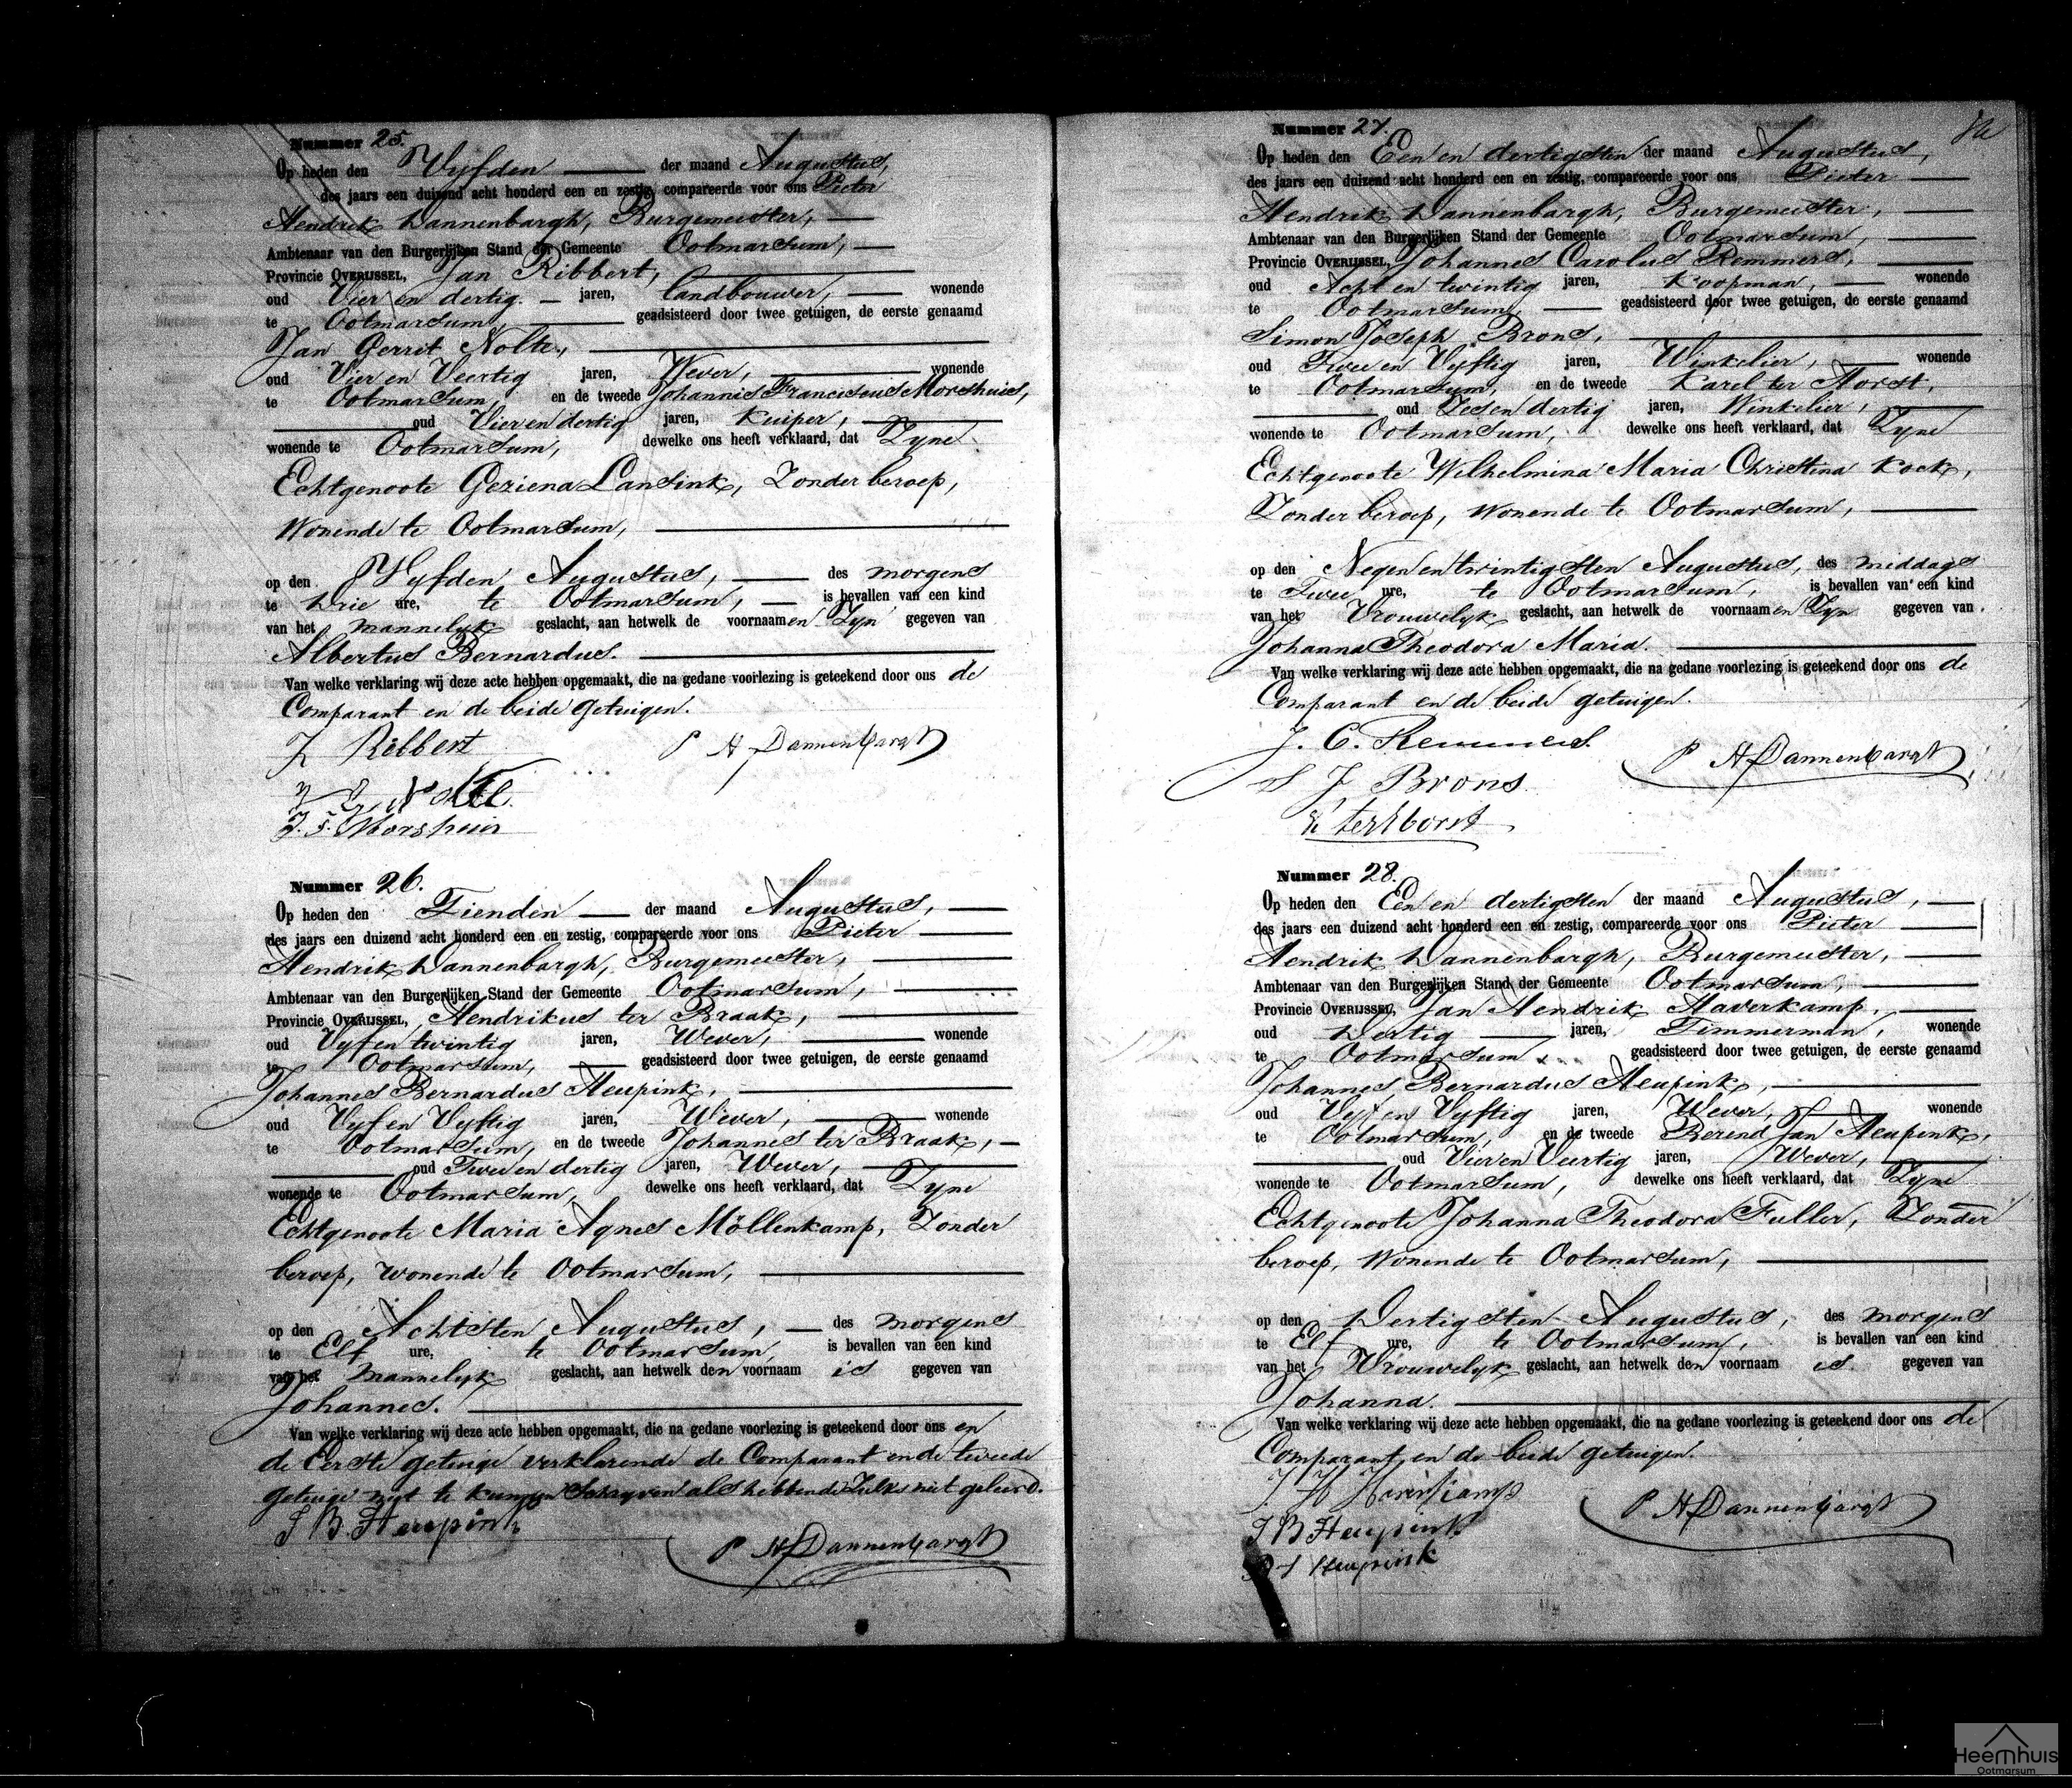 Nummer 25.
Op heden den Vyfden der maand Augustus,
des jaars een duizend acht honderd een en zestig, compareerde voor ons Pieter
Hendrik Dannenbargh, Burgemeester,
Ambtenaar van den Burgerlijken Stand der Gemeente Ootmarsum,
Provincie OVERIJSSEL, Jan Ribbert,
oud Vier en dertig jaren, Landbouwer, wonende
te Ootmarsum, geadsisteerd door twee getuigen, de eerste genaamd
Jan Gerrit Nolte,
oud Vier en Veertig jaren, Wever, wonende
te Ootmarsum, en de tweede Johannis Franciscus Morshuis,
oud Vier en dertig jaren, Kuiper,
wonende te Ootmarsum, dewelke ons heeft verklaard, dat Zyne
Echtgenoote Geziena Lansink, Zonder beroep,
Wonende te Ootmarsum,
op den Vyfden Augustus, des morgens
te Drie ure, te Ootmarsum, is bevallen van een kind
van het mannelyk geslacht, aan hetwelk de voornaamen Zyn gegeven van
Albertus Bernardus.
Van welke verklaring wij deze acte hebben opgemaakt, die na gedane voorlezing is geteekend door ons de
Comparant en de beide getuigen.
J Ribbert P H Dannenbargh
J G Nolte
J. F. Morshuis
Nummer 26.
Op heden den Tienden der maand Augustus,
des jaars een duizend acht honderd een en zestig, compareerde voor ons Pieter
Hendrik Dannenbargh, Burgemeester,
Ambtenaar van den Burgerlijken Stand der Gemeente Ootmarsum,
Provincie OVERIJSSEL, Hendrikus ter Braak,
oud Vyf en twintig jaren, Wever, wonende
te Ootmarsum, geadsisteerd door twee getuigen, de eerste genaamd
Johannes Bernardus Heupink,
oud Vyf en Vyftig jaren, Wever, wonende
te Ootmarsum, en de tweede Johannes ter Braak,
oud Twee en dertig jaren, Wever,
wonende te Ootmarsum, dewelke ons heeft verklaard, dat Zyne
Echtgenoote Maria Agnes Möllenkamp, Zonder
beroep, wonende te Ootmarsum,
op den Achtsten Augustus, des morgens
te Elf ure, te Ootmarsum is bevallen van een kind
van het mannelyk geslacht, aan hetwelk den voornaam is gegeven van
Johannes.
Van welke verklaring wij deze acte hebben opgemaakt, die na gedane voorlezing is geteekend door ons en
de Eerste getuige verklarende de Comparant en de tweede
getuige niet te kunnen Schryven als hebbende Zulks niet geleerd.
J B. Heupink
P H Dannenbargh
Nummer 27.
Op heden den Een en dertigsten der maand Augustus,
des jaars een duizend acht honderd een en zestig, compareerde voor ons Pieter
Hendrik Dannenbargh, Burgemeester,
Ambtenaar van den Burgerlijken Stand der Gemeente Ootmarsum,
Provincie OVERIJSSEL, Johannes Carolus Remmers,
oud Acht en twintig jaren, Koopman, wonende
te Ootmarsum, geadsisteerd door twee getuigen, de eerste genaamd
Simon Joseph Brons,
oud Twee en Vyftig jaren, Winkelier, wonende
te Ootmarsum, en de tweede Karel ter Horst,
oud Zes en dertig jaren, Winkelier,
wonende te Ootmarsum, dewelke ons heeft verklaard, dat Zyne
Echtgenoote Wilhelmina Maria Christina Kock,
Zonder beroep, Wonende te Ootmarsum,
op den Negen en twintigsten Augustus, des middags
te Twee ure, te Ootmarsum, is bevallen van een kind
van het Vrouwelyk geslacht, aan hetwelk de voornaamen Zyn gegeven van
Johanna Theodora Maria.
Van welke verklaring wij deze acte hebben opgemaakt, die na gedane voorlezing is geteekend door ons de
Comparant en de beide getuigen.
J. C. Remmers. P H Dannenbargh
S J Brons
K ter Horst
Nummer 28.
Op heden den Een en dertigsten der maand Augustus,
des jaars een duizend acht honderd een en zestig, compareerde voor ons Pieter
Hendrik Dannenbargh, Burgemeester,
Ambtenaar van den Burgerlijken Stand der Gemeente Ootmarsum,
Provincie OVERIJSSEL, Jan Hendrik Haverkamp,
oud Dertig jaren, Timmerman, wonende
te Ootmarsum, geadsisteerd door twee getuigen, de eerste genaamd
Johannes Bernardus Heupink,
oud Vyf en Vyftig jaren, Wever, wonende
te Ootmarsum, en de tweede Berend Jan Heupink,
oud Vier en Veertig jaren, Wever,
wonende te Ootmarsum, dewelke ons heeft verklaard, dat Zyne
Echtgenoote Johanna Theodora Fuller, Zonder
beroep, Wonende te Ootmarsum,
op den Dertigsten Augustus, des morgens
te Elf ure, te Ootmarsum, is bevallen van een kind
van het Vrouwelyk geslacht, aan hetwelk den voornaam is gegeven van
Johanna.
Van welke verklaring wij deze acte hebben opgemaakt, die na gedane voorlezing is geteekend door ons de
Comparant en de beide getuigen.
J H Haverkamp P H Dannenbargh
J B Heupink
B J Heupink
Heemhuis
Ootmarsum